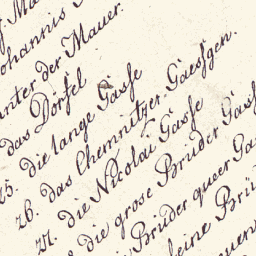 Johannis
unter der Mauer.
das Dörfel
25. die lange Gasse
26. das Chemnitzer Gaessgen.
27. die Nicolai Gasse
die grose Brüder Gass
Brüder queer Ga
kleine Brü